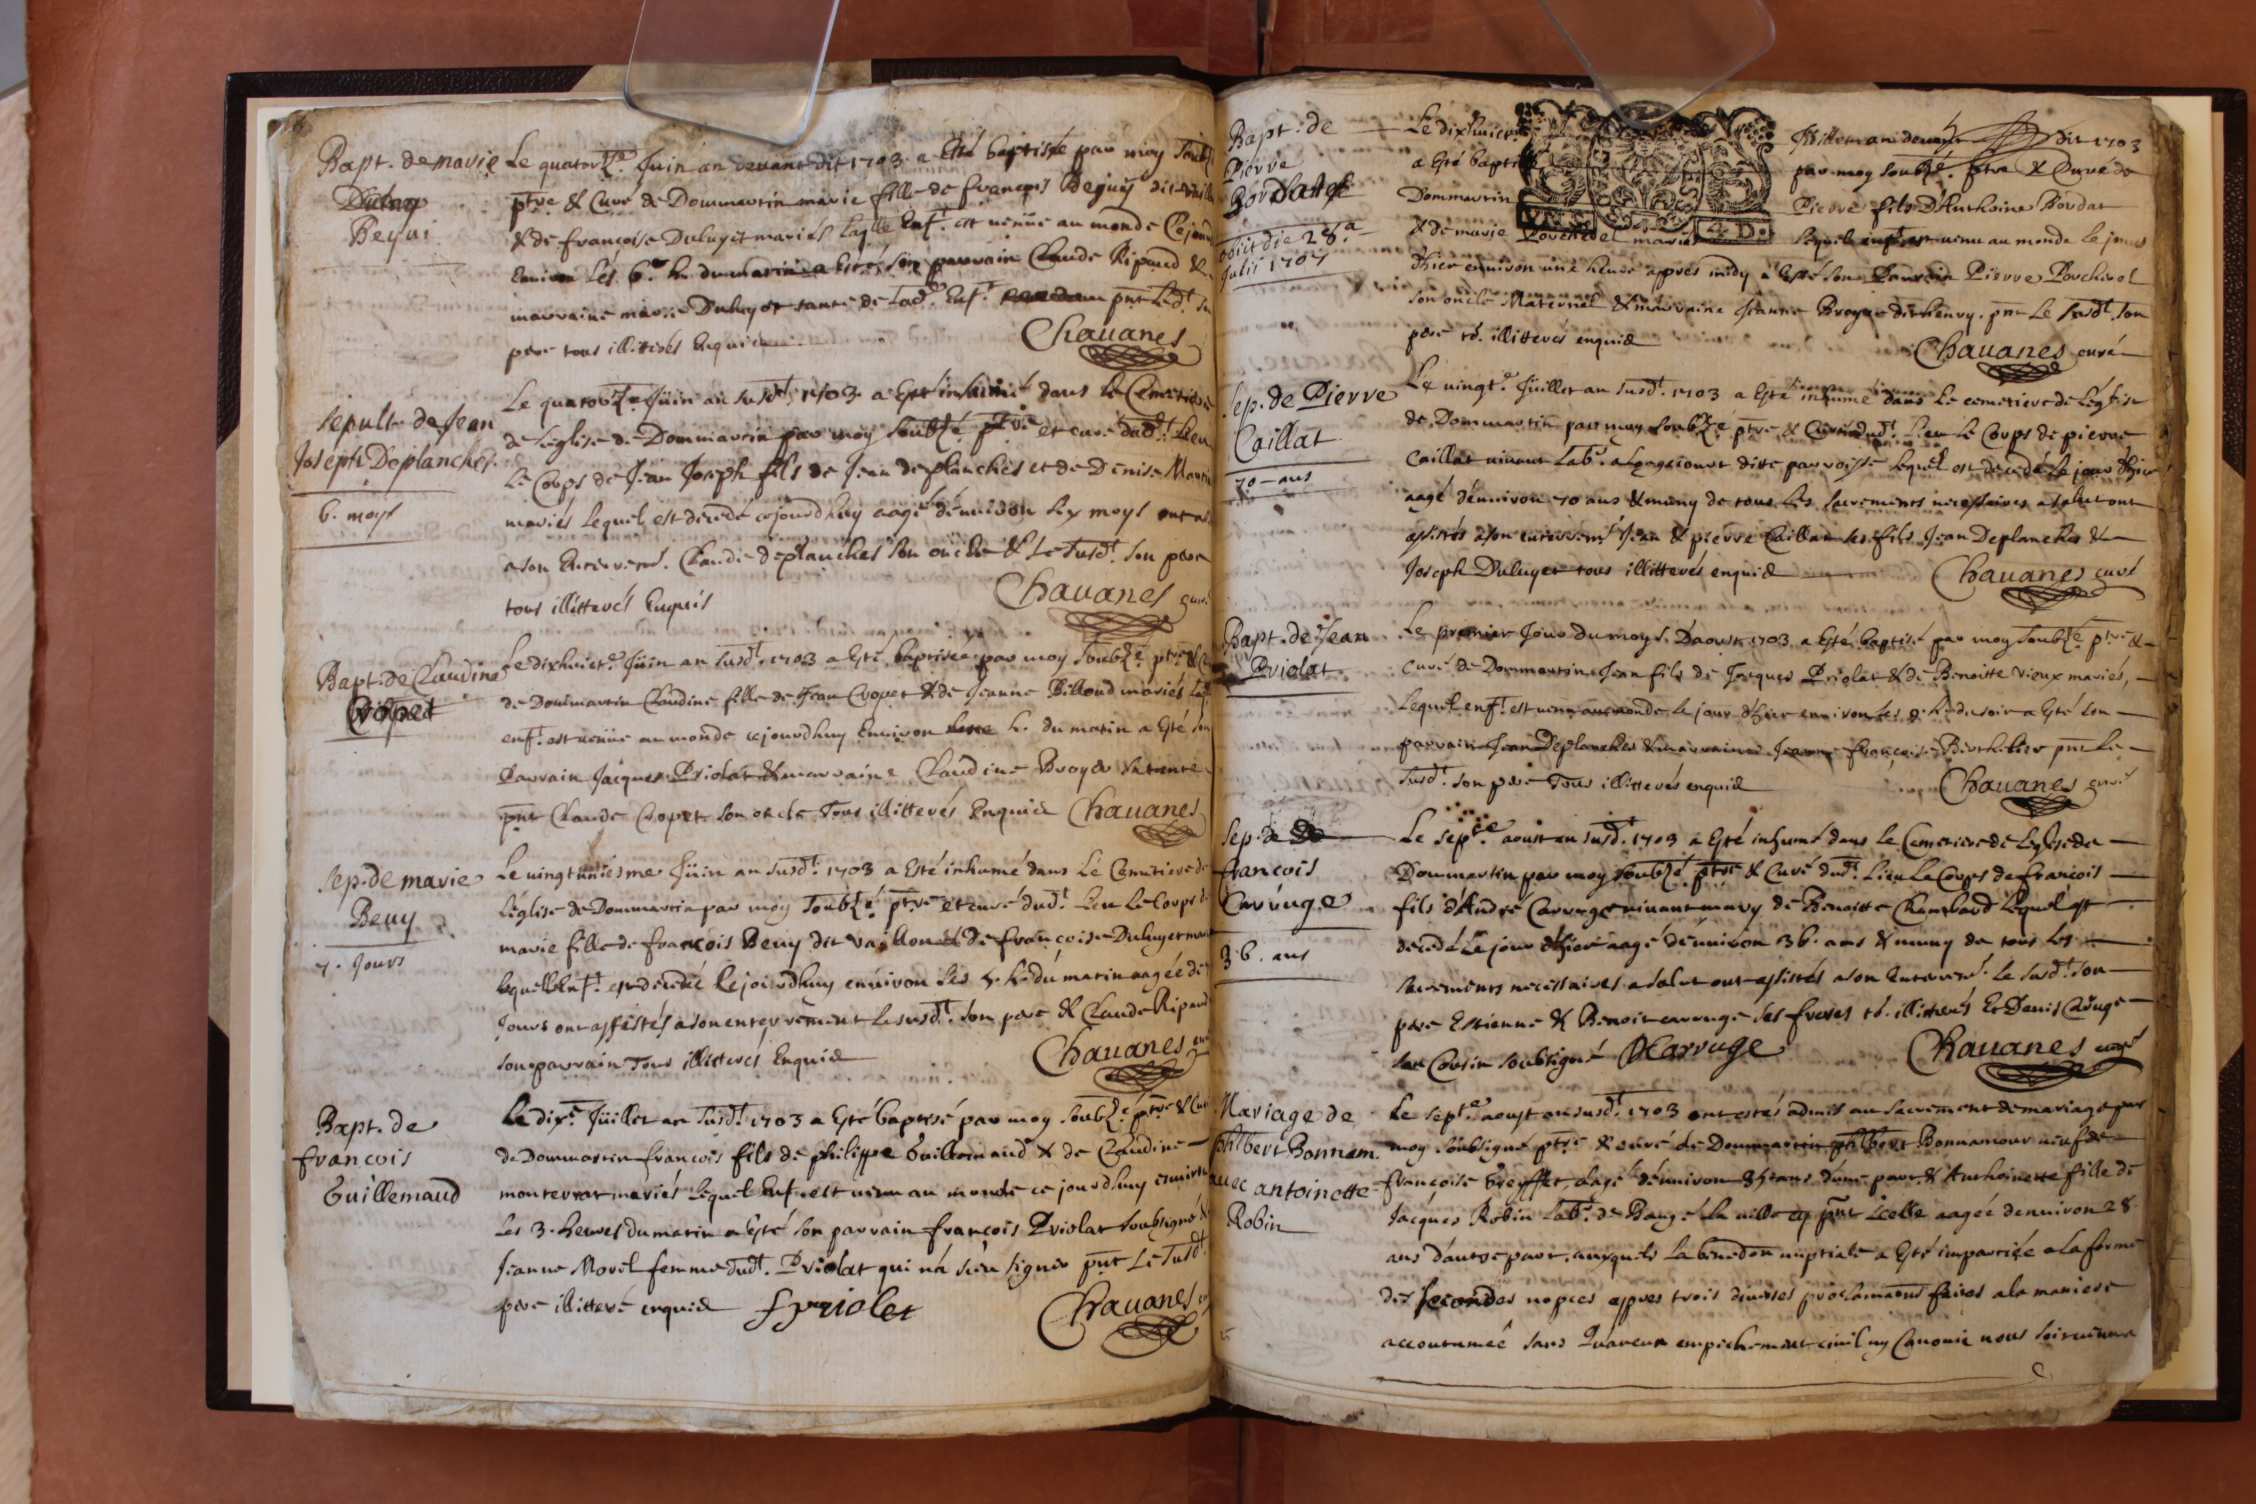 Bapt. de marie
Duluy
Begui
Le quatorze Juin an devant dit 1703 a Esté baptisée par moy Soubze
ptre & Curé de Dommartin marie fille de françois Beguy dit
& de françoise Duluyet mariés laqlle Enft. est venüe au monde Cejourd
Environ les 6. h. du matin a Esté son parrain Claude Ripaud &
marraine marie Duluyet tante de Ladte. Enft. pnt Ledt. son
pere tous illitterés Enquis
Chauanes
Sepult. de Jean
Joseph Deplanches.
6. moys
Le quatorze Juin an Susdt. 1703 a Esté inhumé dans le Cemetiere
de L'eglise de Dommartin par moy Soubzé ptre et curé dudt. Lieu
Le Corps de Jean Joseph fils de Jean deplanches et de Denise
mariés Lequel est décédé cejourdhuy aagé dénuiron Six moys ont
a son Enterremt. Claude deplanches son oncle & Le Susdt. son pere
tous illitterés Enquis
Chauanes curé
Bapt. de Claudine
Cropet
Le dixhuicte Juin an Susdt. 1703 a Esté baptisée par moy Soubzé ptre & C
de Dommartin Claudine fille de Jean Cropet & de Jeanne Billoud mariés
enft. est venüe au monde cejourdhuy Enuiron h. du matin a Esté son
Parrain Jacques Priolat & marraine Claudine Broyer
pnt Claude Cropet son oncle Tous illitterés Enquis Chauanes
Sep. de marie
Beuy
7. Jours
Le uingtuniésme Juin an Susdt. 1703 a Esté inhumé dans Le Cemetiere de
L'église de Dommartin par moy Soubzé ptre et curé dudt. Lieu Le Corps d
marie fille de françois Beuy dit Vaillon & de françoise Duluyet
laquelle Enft. est decedée cejourdhuy enuiron les 5. h. du matin aagée de
Jours ont assistés a son enterrement le susdt. son pere & Claude Ripaud
son parrain Tous illitterés Enquis
Chauanes
Bapt. de
françois
Guillemaud
Le dixe. Jüillet an Susdt. 1703 a Esté baptisé par moy Soubzé ptre & Cur
de Dommartin françois fils de philippe Guillemaud & de Claudine
monterrat mariés Lequel Enft. est uenu au monde ce jourdhuy
Les 3. heures du matin a Esté son parrain françois Priolat soubsigné
Jeanne Morel femme dudt. Priolat qui n'a sceu signer pnt Le Susdt.
pere illitteré enquis f priolet
Chauanes
Bapt. de
Pierre
Bordat
obiit die 28a
Julii 1707
Le dixhuict Jüillet an deuant dit 1703
a Esté bapti par moy soubzé. ptre & Curé de
Dommartin Pierre fils D'Anthoine Bordat
& de marie Pocherel mariés Lequel enft. est uenu au monde le jour
d'hier enuiron une heure appres midy a Esté son Parrain Pierre Pocherel
son oncle Maternel & marraine Jeanne Broyer pnt Le susdt. son
pere ts. illitterés enquis
Chauanes curé
Sep. de Pierre
Caillat
70 ans
Le uingte. Jüillet an susdt. 1703 a Esté inhumé dans le cemetiere de L'églse
de Dommartin par moy soubzé ptre & Curé dudt. Lieu Le Corps de pierre
Caillat uiuant Labr. a ditte parroisse lequel est decedé le jour d'hier
aagé d'enuiron 70 ans & muny de tous Les sacrements necessaires a salut ont
assistés a son enterremt. Jean & pierre Caillat ses fils Jean Deplanches &
Joseph Duluyet tous illitterés enquis Chauanes curé
Bapt. de Jean
Priolat
Le premier Jour du moys D'aoust 1703 a Esté baptisé par moy soubzé ptre &
Curé de Dommartin Jean fils de Jacques Priolat & de Benoitte Vieux mariés,
Lequel enft. est uenu au monde le jour d'hier enuiron les h. du soir a Esté son
parrain Jean Deplanches & marraine Jeanne françoise Berthelier pnt Le
susdt. son pere Tous illitterés enquis Chauanes curé
Sep. de
françois
Carruge
36. ans
Le septe aoust an susdt. 1703 a Esté inhumé dans le Cemetiere de L'eglise de
Dommartin par moy soubzé ptre & Curé dudt. Lieu Le Corps de françois
fils d'André Carruge uiuant mary de Benoitte Chambard Lequel est
decedé Le jour d'hier aagé d'enuiron 36. ans & muny de tous Les
sacrements necessaires a salut ont assistés a son Enterremt. Le susdt. son
pere Estienne & Benoit carruge ses freres ts. illitterés Et Denis Caruge
son Cousin soubsigné DCarruge Chauanes curé
Mariage de
philbert Bonnam.
auec antoinette
Robin
Le septe aoust an susdt. 1703 ont estés admis au sacrement de mariage par
moy soubsigné ptre & curé de Dommartin philbert Bonnamour ueuf de
françoise aagé d'enuiron ans d'une part & Anthoinette fille de
Jacques Robin Labr. de Baugé La uille pnt Icelle aagée denuiron 28
ans d'autre part. auxquels La benedon nuptiale a Esté impartiée a La forme
des Secondes nopces appres trois diuerses proclamaons faites a la maniere
accoutumée sans qu'aucun empechement ciuil ny Canonic nous soit uenu